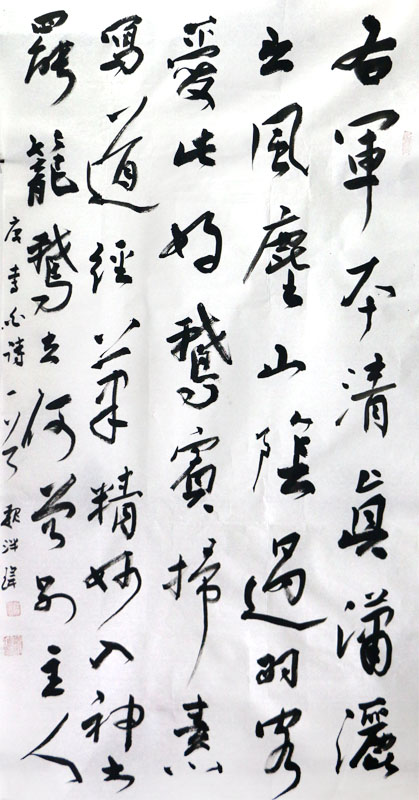 右軍本清眞瀟灑
出風塵山陰過羽客
愛此好鵝賓掃素
寫道經筆精妙入神書
罷籠鵝去何曾別主人
唐李白詩一首